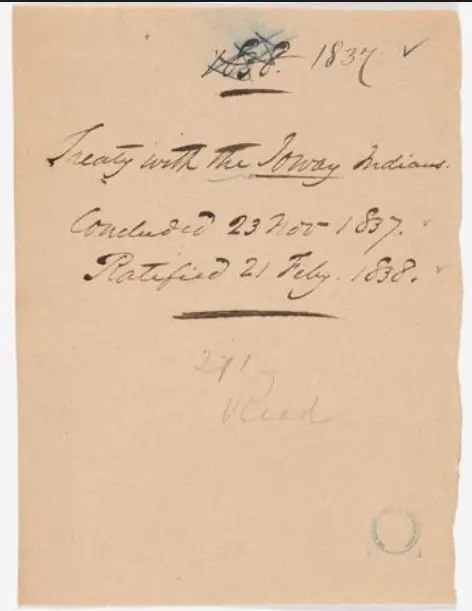 1838. 1837 ✓
Treaty with the Ioway Indians.
Concluded 23 Nov 1837.
Ratified 21 Feby. 1838.
Read